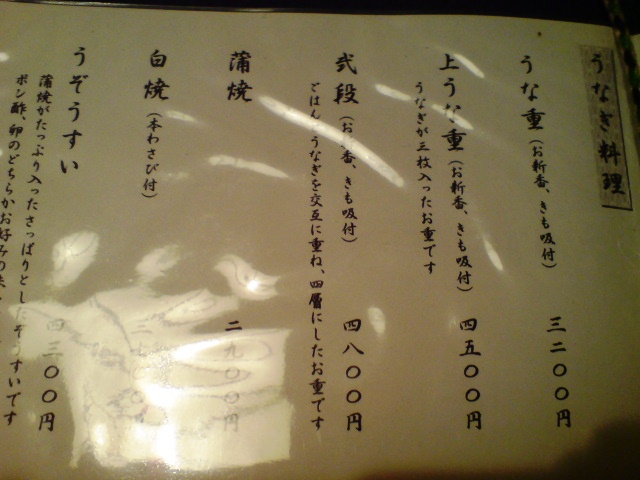 うなぎ料理
うな重（お新香、きも吸付）
三二〇〇円
上うな重（お新香、きも吸付）
四五〇〇円
うなぎが三枚入ったお重です
弐段（お新香、きも吸付）
四八〇〇円
ごはん、うなぎを交互に重ね、四層にしたお重です
蒲焼
二九〇〇円
白焼（本わさび付）
〇〇円
うぞうすい
四三〇〇円
蒲焼がたっぷり入ったさっぱりとしたぞうすいです
ポン酢、卵のどちらかお好みの味